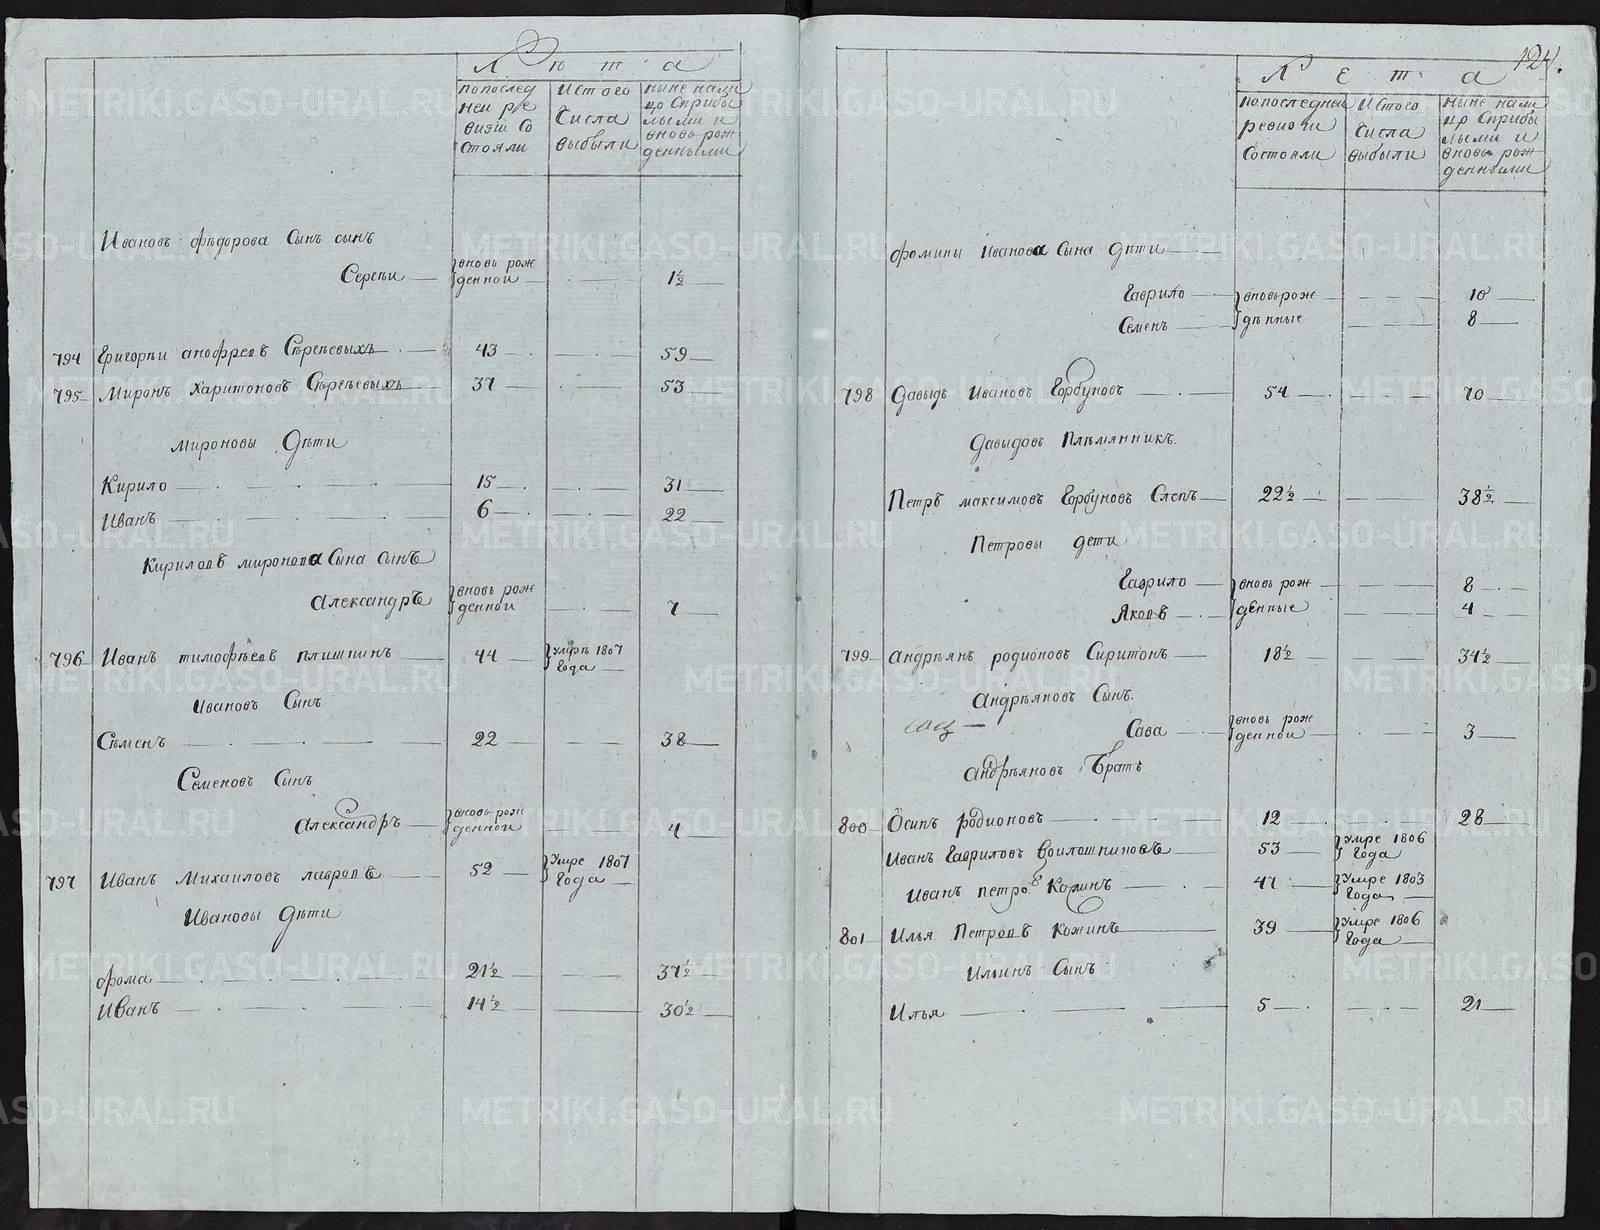 Лѣта
по последней ревизии состояли
Ис того числа выбыли
ныне налицо с прибылыми и вновь рожденными
Ивановъ Фѣдорова Сынъ сынъ
Сергѣи вновь рожденной 1½
794 Григорѣи анофреевъ Сѣргѣевыхъ 43 59
795 Миронъ Харитоновъ Сѣргѣевыхъ 37 53
мироновы Дѣти
Кирило 15 31
Иванъ 6 22
Кириловъ миронова Сына сынъ
Александръ вновь рожденной 7
796 Иванъ тимофѣевъ плишкинъ 44 умрѣ 1807 Года
Ивановъ Сынъ
Сѣменъ 22 38
Семеновъ Сынъ
Александръ вновь рожденной 4
797 Иванъ Михаиловъ лавровъ 52 умре 1807 Года
Ивановы Дѣти
фома 21½ 37½
Иванъ 14½ 30½
124.
Лета
по последней ревизии состояли
Ис того числа выбыли
ныне налицо с прибылыми и вновь рожденными
фомины Иванова Сына Дѣти
Гаврило вновь рождѣнные 10
Семенъ 8
798 Давыдъ Ивановъ Горбуновъ 54 70
Давыдовъ Племянникъ.
Петръ максимовъ Горбуновъ Слепъ 22½ 38½
Петровы дети
Гаврило вновь рожденные 8
Яковъ 4
799 Андрѣянъ родионовъ 18½ 34½
Андрѣяновъ Сынъ.
Сава вновь рожденнои 3
андрѣяновъ Братъ
800 Осипъ родионовъ 12 28
Иванъ Гавриловъ 53 умре 1806 Года
Иванъ петровъ Кожинъ 47 умре 1803 Года
801 Илья Петровъ Кожинъ 39 умре 1806 Года
Ильинъ Сынъ
Илья 5 21
METRIKI.GASO-URAL.RU